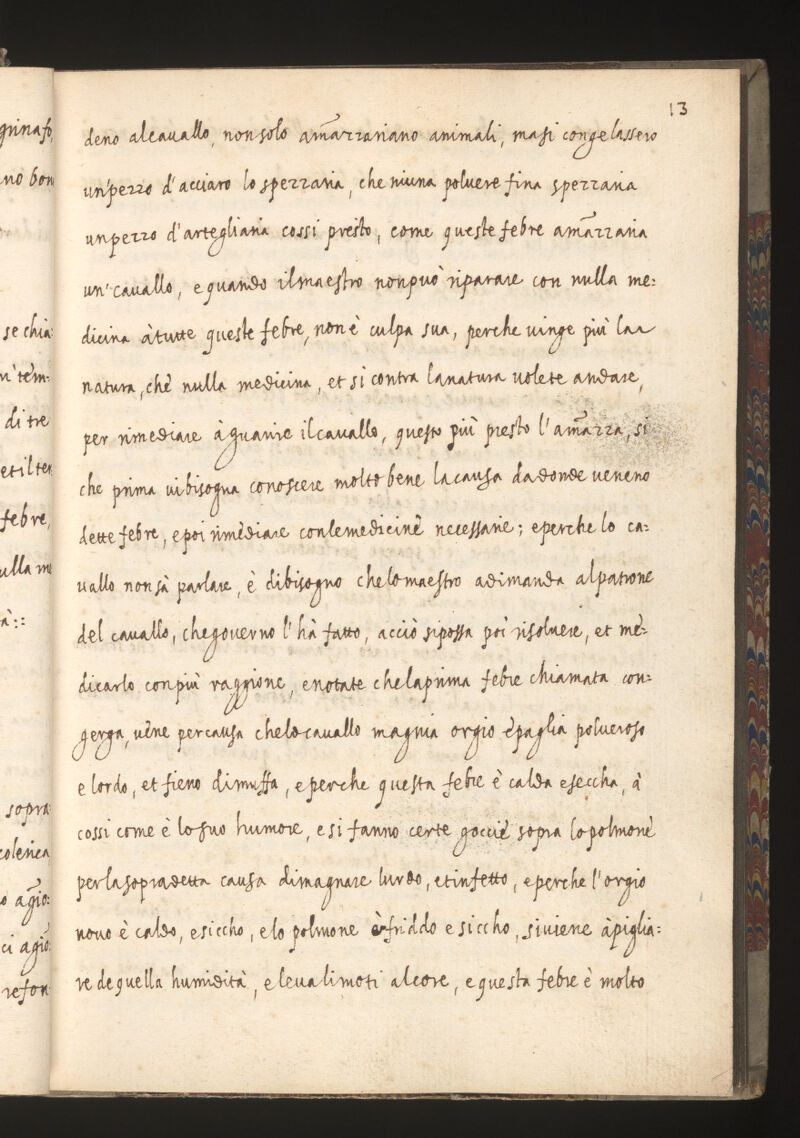 13
deno alcauallo, nonsolo am̃azzariano animali, masi congelassero
un'pezzo d'acciaro lo spezzaria, che niuna poluere fina spezzaria
unpezzo d'artegliaria cossi presto, come queste febre am̃azzaria
un'cauallo, e quando ilmaestro nonpuò riparare con nulla me:
dicina àtutte queste febre, non è culpa sua, perche uinge più la
natura, chè nulla medicina, et si contra lanatura uolete andare,
per rimediare à guarire ilcauallo, questo più presto l'am̃azza, si
che prima uibisogna conoscere molto bene lacausa dadonde ueneno
dette febre, epoi rimèdiare conlemedicinè necessarie; eperche lo ca:
uallo non sà parlare, è dibisogno chelomaestro adimanda alpatrone
del cauallo, chegouerno l'hà fatto, acciò sipossa poi risoluere, et mè:
dicarlo conpiù raggione, enotate chelaprima febre chiamata con:
gerga, uène percausa chelocauallo magnia orgio èpaglia polueroso
e lordo, et fieno dimuffa, eperche questa febre è calda eseccha, à
cossi come è lo suo humore, esi fanno certe goccie sopra lo polmonè
perlasopradetta causa dimagnare lurdo, etinfetto, eperche l'orgio
nouo è caldo, esiccho, elo polmone è friddo e siccho, siuiene àpiglia:
re dequella humidità, eleualimoti alcore, equesta febre è molto
grina fo,
no bon
se chia:
n'tem:
di tre
etilter
febre,
ulla me
à::
sopra:
colerica
o agio:
ci agio
re fon: